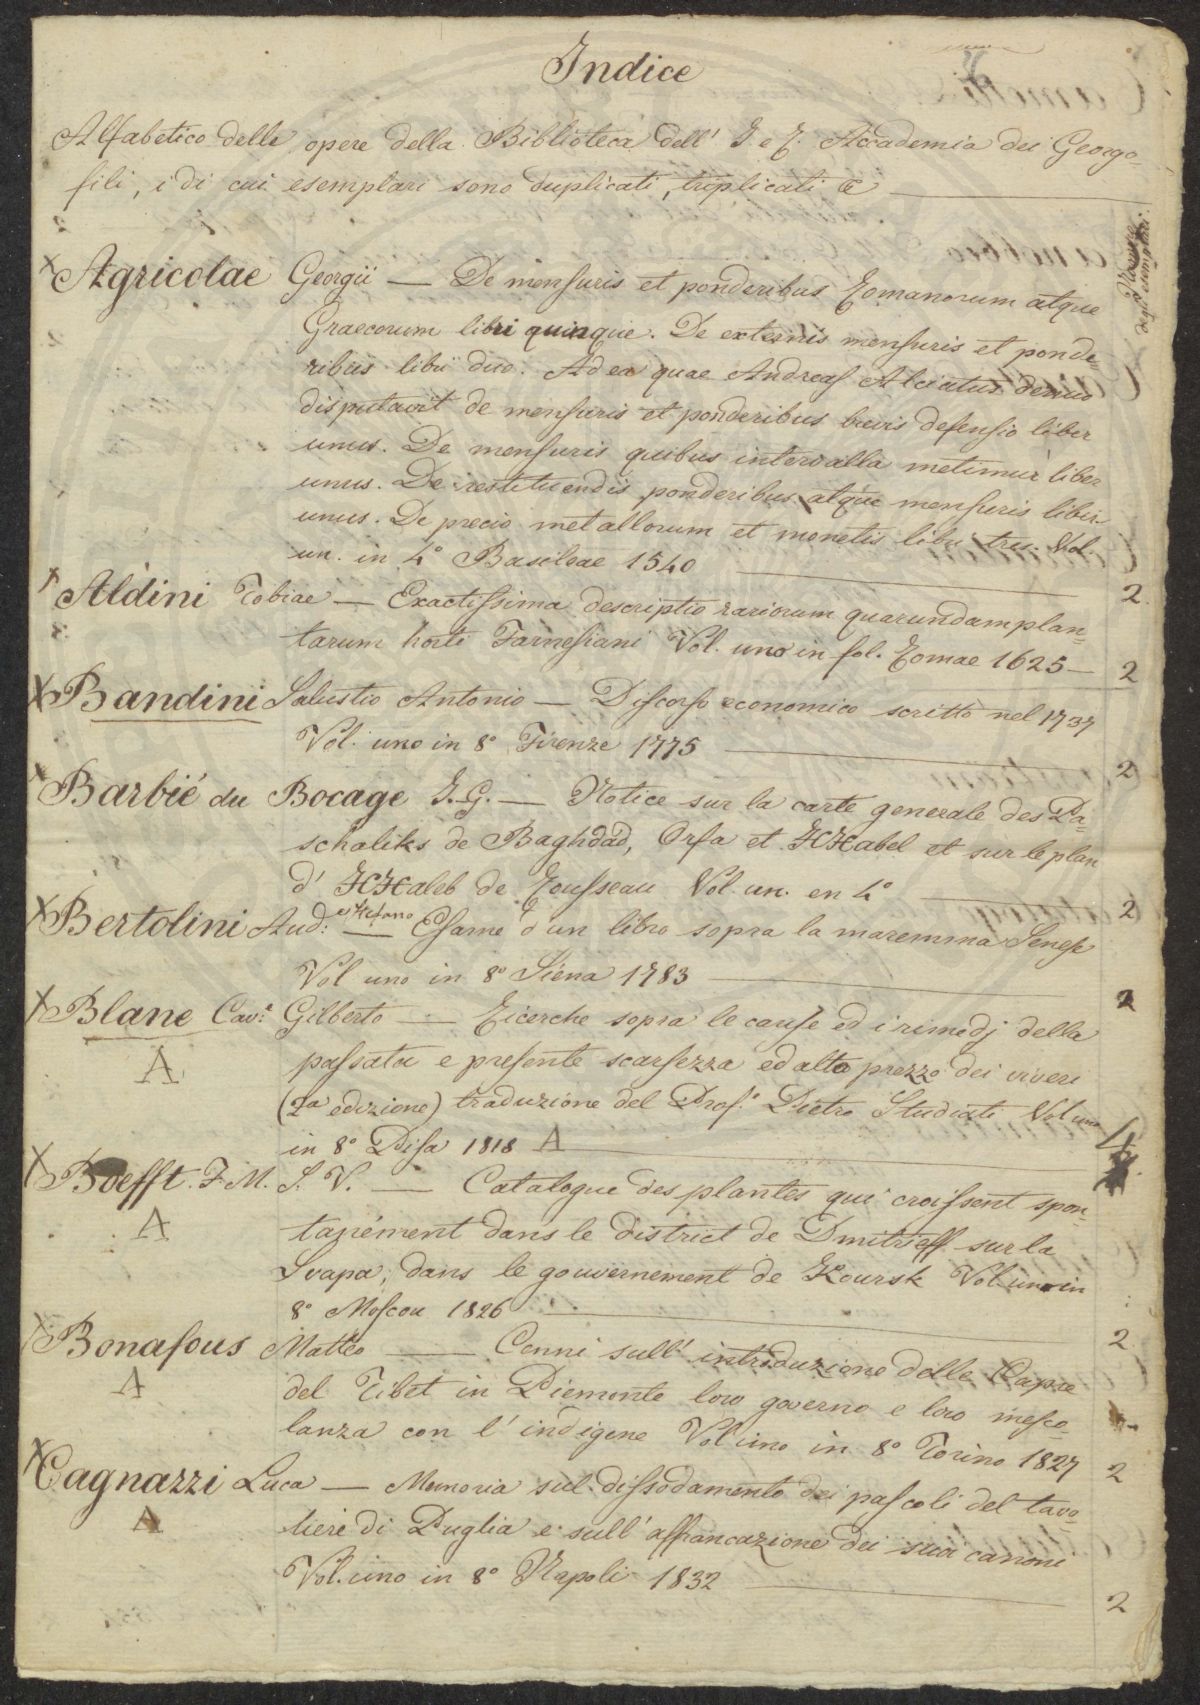 Indice
Alfabetico delle opere della Biblioteca dell' I. e R. Accademia dei Georgo-
fili, i di cui esemplari sono duplicati, triplicati &
Numero
degli esemplari.
x Agricolae Georgii — De mensuris et ponderibus Romanorum atque
Graecorum libri quinque. De externis mensuris et ponde
ribus libri duo. Ad ea quae Andreas Alciatus denuo
disputavit de mensuris et ponderibus brevis defensio liber
unus. De mensuris quibus intervalla metimur liber
unus. De restituendis ponderibus atque mensuris liber
unus. De precio metallorum et monetis libri tres. Vol.
un. in 4° Basileae 1540 — 2
x Aldini Tobiae — Exactissima descriptio rariorum quarundam plan=
tarum horti Farnesiani Vol. uno in fol. Romae 1625 — 2
x Bandini Salustio Antonio — Discorso economico scritto nel 1737
Vol. uno in 8° Firenze 1775 — 2
x Barbié du Bocage J. G. — Notice sur la carte generale des Pa=
schaliks de Baghdad, Orfa et Hhabel et sur le plan
d' Hhaleb de Rousseau Vol. un. en 4° — 2
x Bertolini Aud: e Stefano — Esame d'un libro sopra la maremma Senese
Vol uno in 8° Siena 1783 — 2
x Blane Cav.e Gilberto — Ricerche sopra le cause ed i rimedj della
A passata e presente scarsezza ed alto prezzo dei viveri
(2a edizione) traduzione del Prof.e Pietro Studiati Vol uno
in 8° Pisa 1818 A — 4
x Boefft. F. M. S. V. — Catalogue des plantes qui croissent spon=
A tanément dans le district de Dmitrieff sur la
Svapa, dans le gouvernement de Koursk Vol. uno in
8° Moscou 1826 — 2
x Bonafous Matteo — Cenni sull' introduzione delle Capre
A del Tibet in Piemonte loro governo e loro mesco-
lanza con l' indigene Vol uno in 8° Torino 1827 2
x Cagnazzi Luca — Memoria sul dissodamento dei pascoli del tavo-
A liere di Puglia e sull' affrancazione dei suoi canoni
Vol. uno in 8° Napoli 1832 — 2